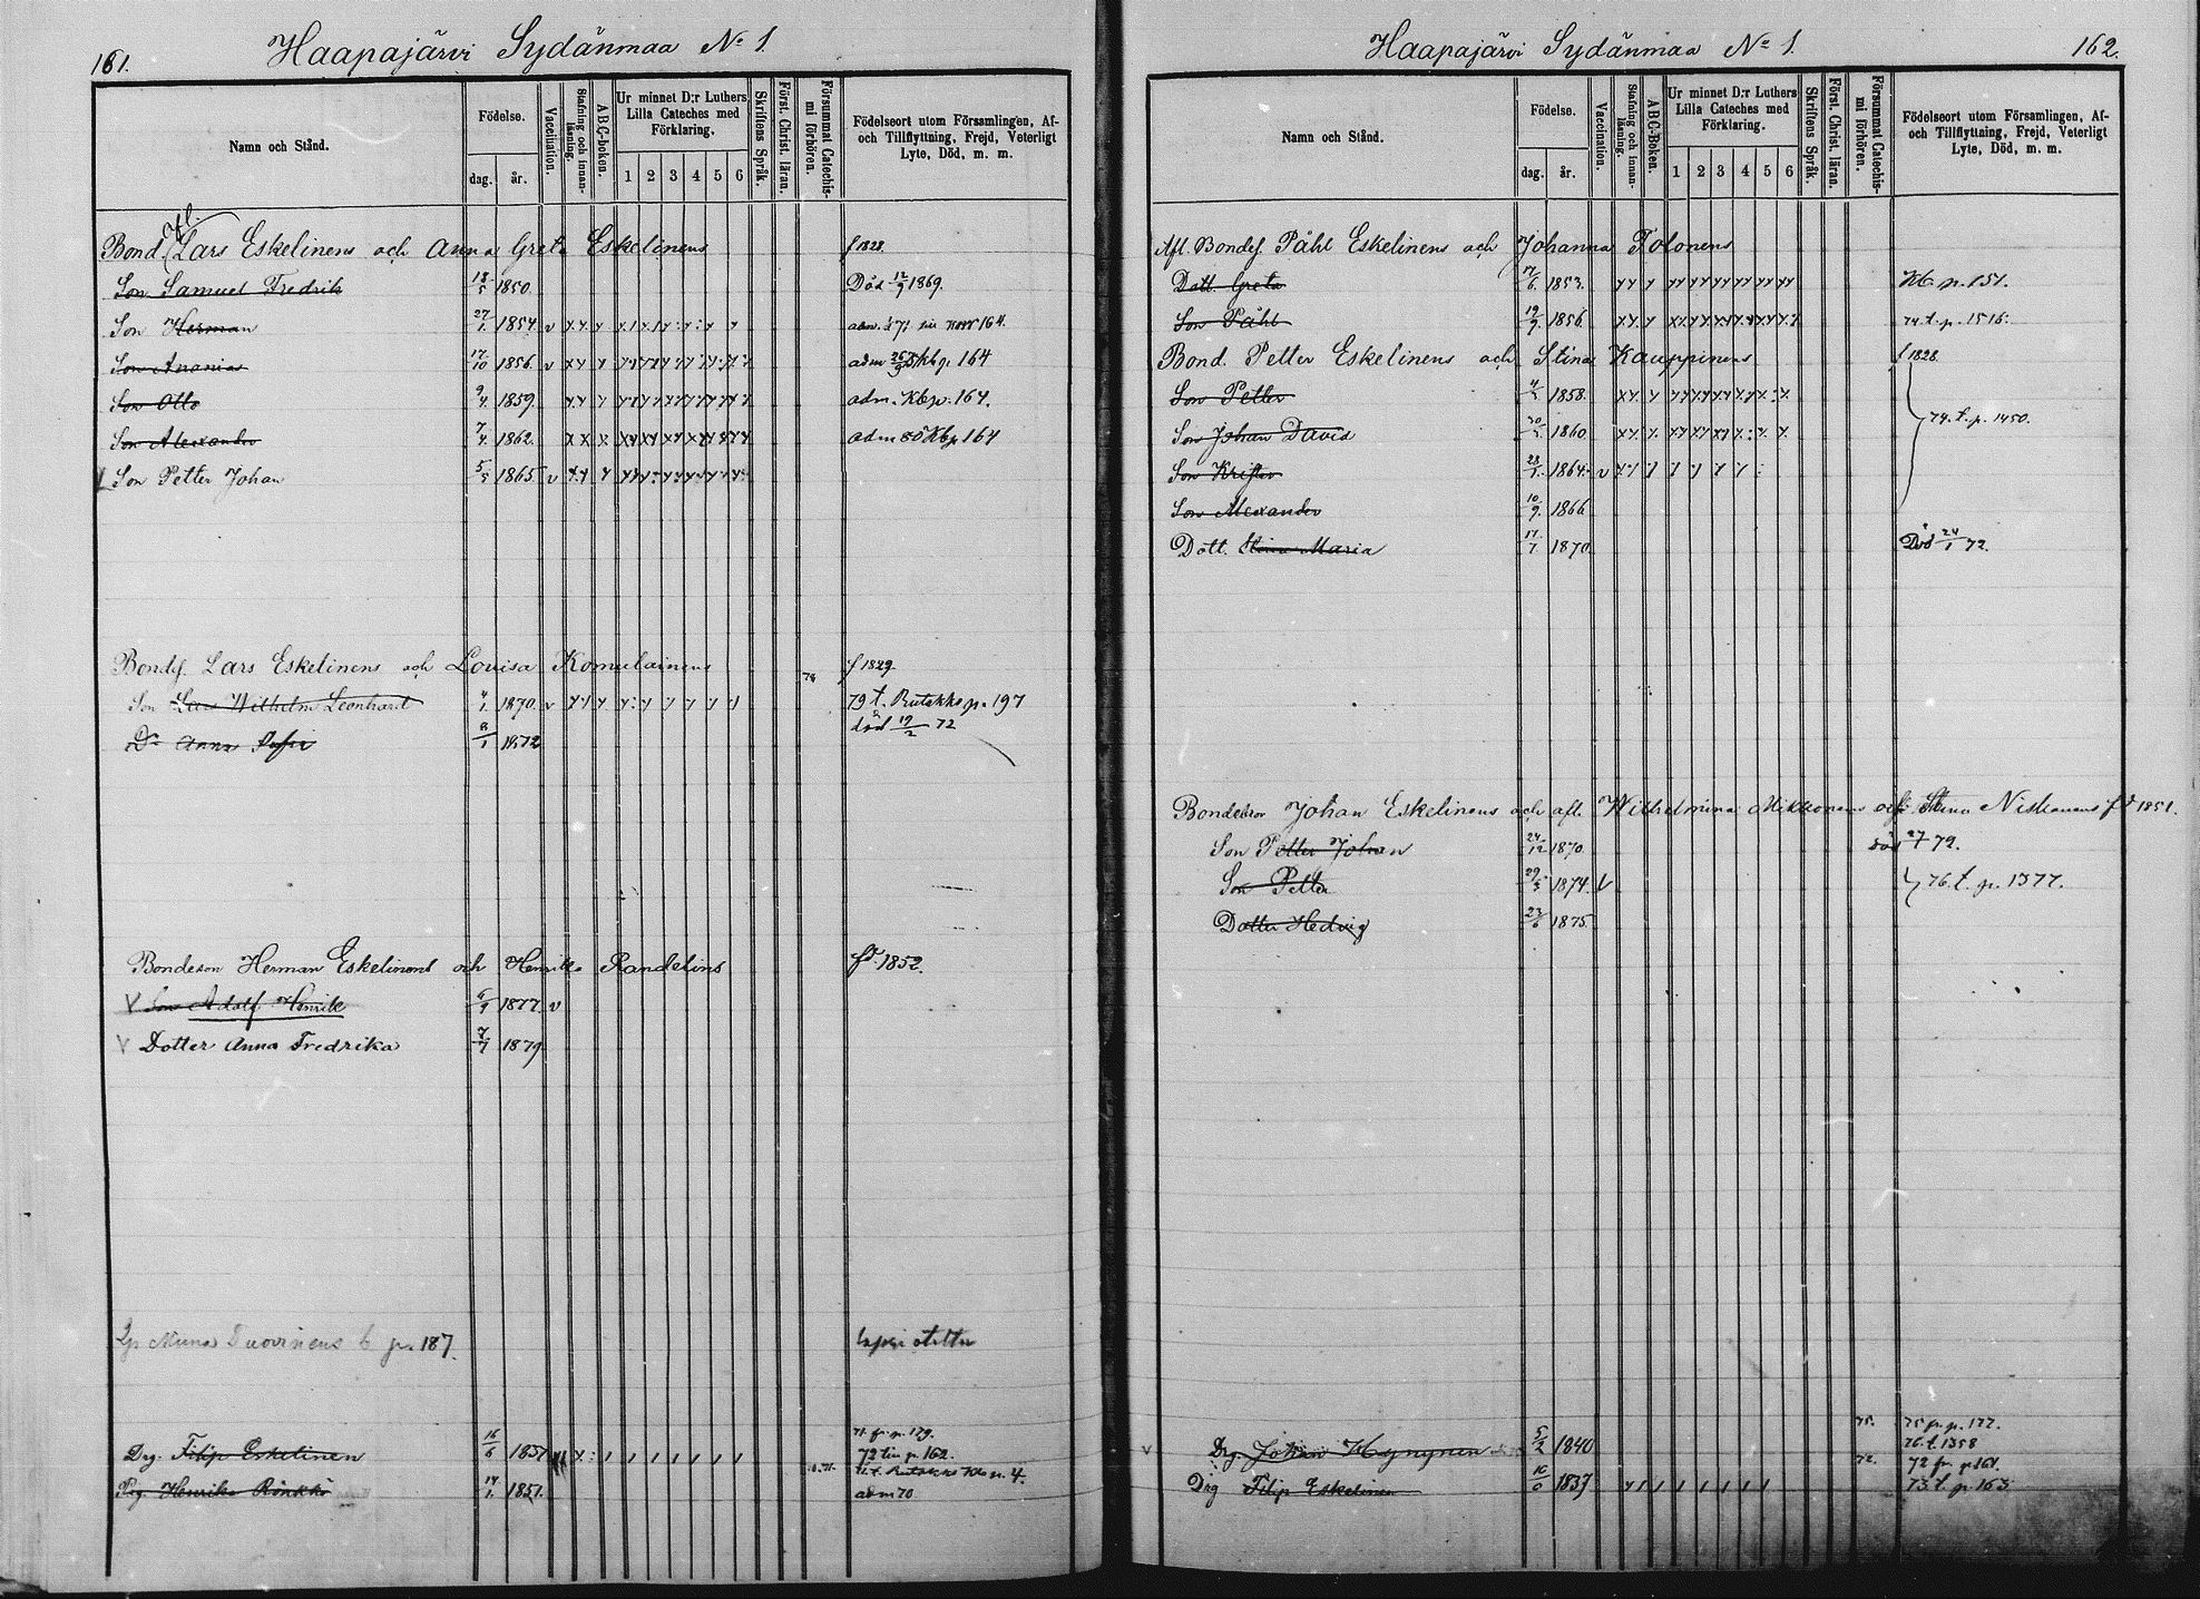 161.
Haapajärvi Sydänmaa No 1.
Namn och Stånd.
Födelse.
dag. år.
Vaccination.
Stafning och innanläsning.
ABC-Boken.
Ur minnet D:r Luthers Lilla Cateches med Förklaring.
1 2 3 4 5 6
Skriftens Språk.
Först. Christ. läran.
Försummat Catechismi förhören.
Födelseort utom Församlingen, Af- och Tillflyttning, Frejd, Veterligt Lyte, Död, m. m.
afl.
Bond. Lars Eskelinens och Anna Greta Eskelinens f 1828.
Son Samuel Fredrik 18/5 1850. Död 12/9 1869.
Son Herman 27/1 1854 v 164.
Son Ananias 17/10 1856 v adm kb p 164
Son Otto 9/4 1859. adm. Kb p. 164.
Son Alexander 7/4 1862. adm 80 Kb p 164
Son Petter Johan 5/5 1865 v
Bondes. Lars Eskelinens och Lovisa Komulainens f 1829.
Son Lars Wilhelm Leonhard 4/1 1870 v 79 t. Rutakko p. 197
Dr Anna Sofia 8/1 1872 död 19/2 72
Bondeson Herman Eskelinens och Henrika Randelins fd. 1852.
V Son Adolf Henrik 6/9 1877. v
V Dotter Anna Fredrika 7/7 1879
p. 187.
Drg. Filip Eskelinen 16/6 1837 71 fr p. 179.
72 till p. 162.
Pig. Henrika Rönkkö 14/1 1851. t. Rutakko Kb p. 4.
adm 70
Haapajärvi Sydänmaa No 1.
162.
Namn och Stånd.
Födelse.
dag. år.
Vaccination.
Stafning och innanläsning.
ABC-Boken.
Ur minnet D:r Luthers Lilla Cateches med Förklaring.
1 2 3 4 5 6
Skriftens Språk.
Först. Christ. läran.
Försummat Catechismi förhören.
Födelseort utom Församlingen, Af- och Tillflyttning, Frejd, Veterligt Lyte, Död, m. m.
Afl. Bondes. Påhl Eskelinens och Johanna Tolonens
Dott. Greta 17/6 1853. Kb p. 151.
Son Påhl 19/9 1856. 74. t. p. 1516.
Bond. Petter Eskelinens och Stina Kauppinens f 1828
Son Petter 1858.
Son Johan David 1860 74. t. p. 1450.
Son Krister 28/1 1864 v
Son Alexander 10/9 1866
Dott. Stina Maria 1870 Död 24/1 72.
Bondeson Johan Eskelinens och afl. Wilhelmina Mikkonens och Stina Niskanens fd 1851.
Son Petter Johan 24/12 1870 död 27/7 72.
Son Petter 29/3 1874. V 76. t. p. 1377.
Dotter Hedvig 23/6 1875
75. 75 fr. p. 177.
Drg. Johan Hynynen 5/2 1840 76. t. 1358
72. 72 fr. p. 161.
Drg Filip Eskelinen 1837 73. t. p. 163